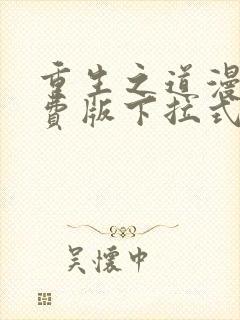 重生之道漫
费版下拉式
吴怀中